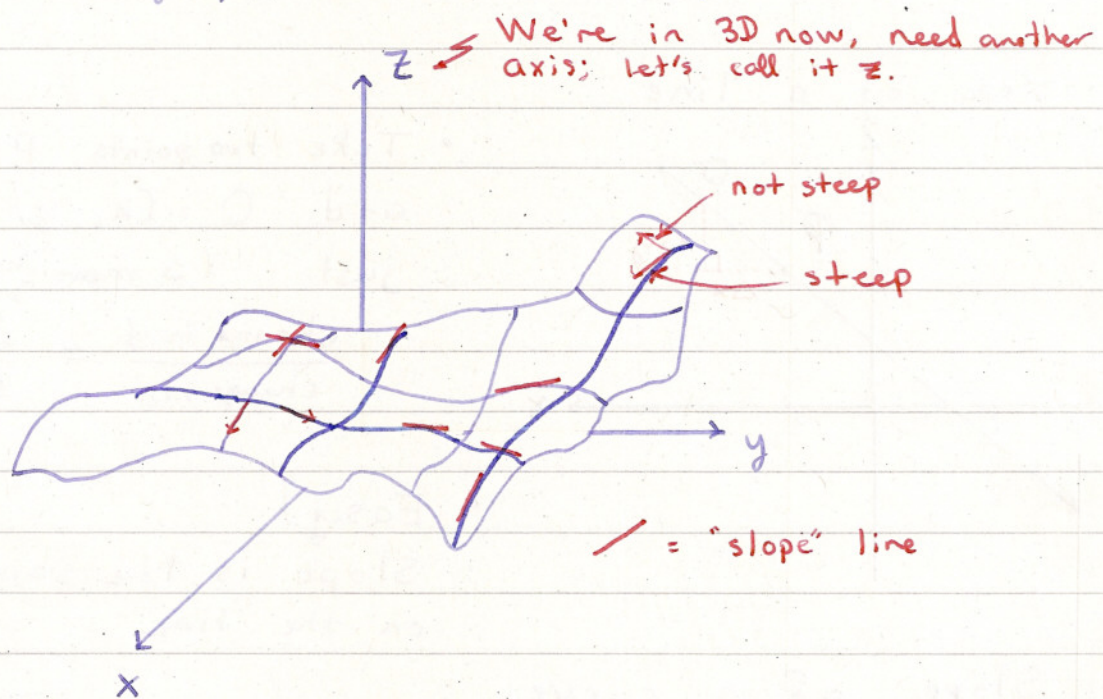 We're in 3D now, need another
z axis; Let's call it z.
not steep
steep
y
= "slope" line
x